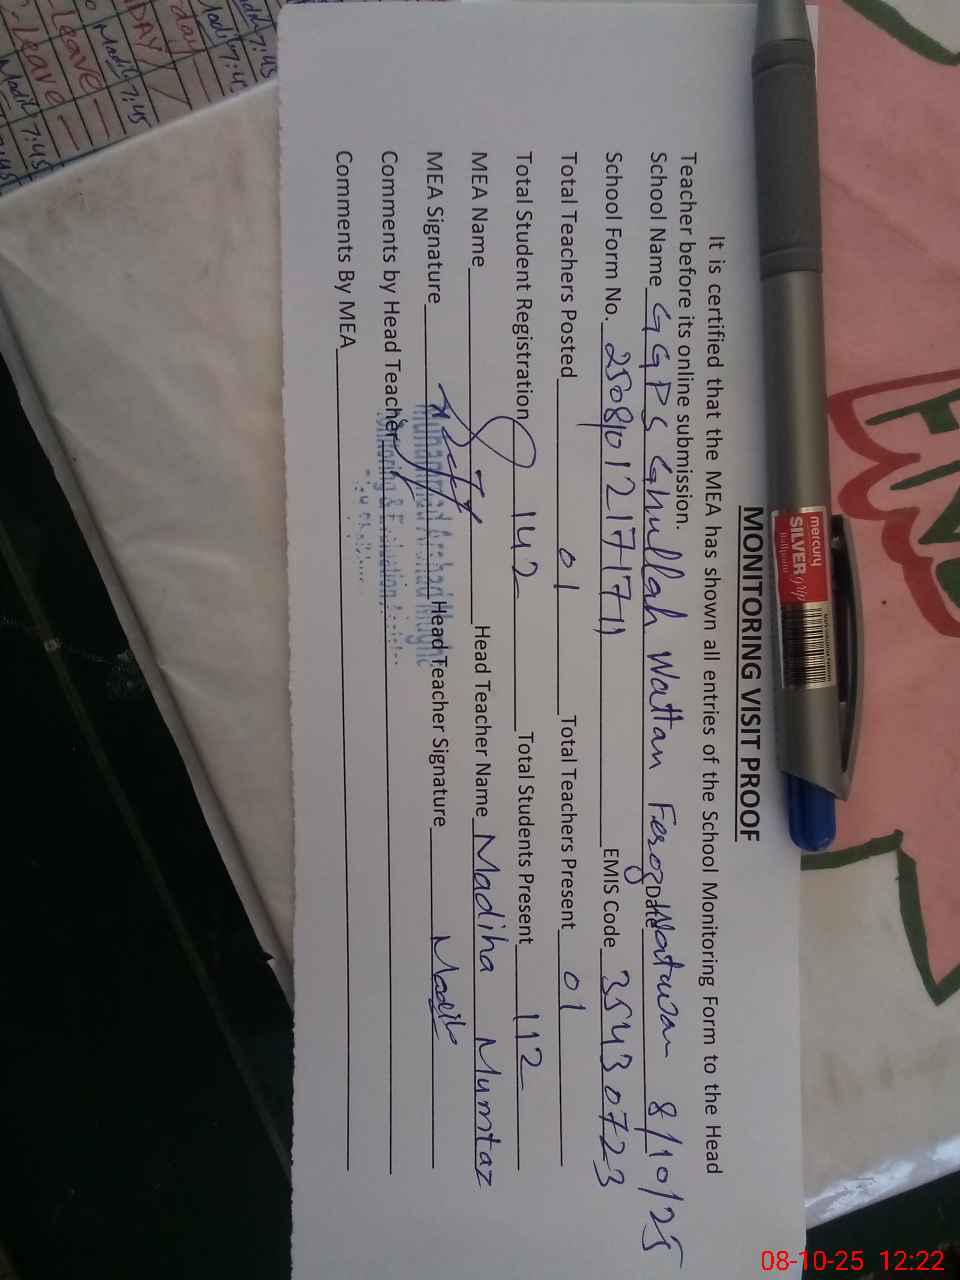 MONITORING VISIT PROOF
It is certified that the MEA has shown all entries of the School Monitoring Form to the Head
Teacher before its online submission.
School Name GGPS Ghullah Wattan Feroz Watwan Date 8/10/25
School Form No. EMIS Code 35430723
Total Teachers Posted 01 Total Teachers Present 01
Total Student Registration 142 Total Students Present 112
MEA Name Head Teacher Name Madiha Mumtaz
MEA Signature Head Teacher Signature Madih
Muhammad Arshad
Monitoring & Evaluation
Comments by Head Teacher
Comments By MEA
mercury
SILVER grip
Ballpoint
Leave
Leave
Madih 7:45
Madih 7:45
08-10-25 12:22